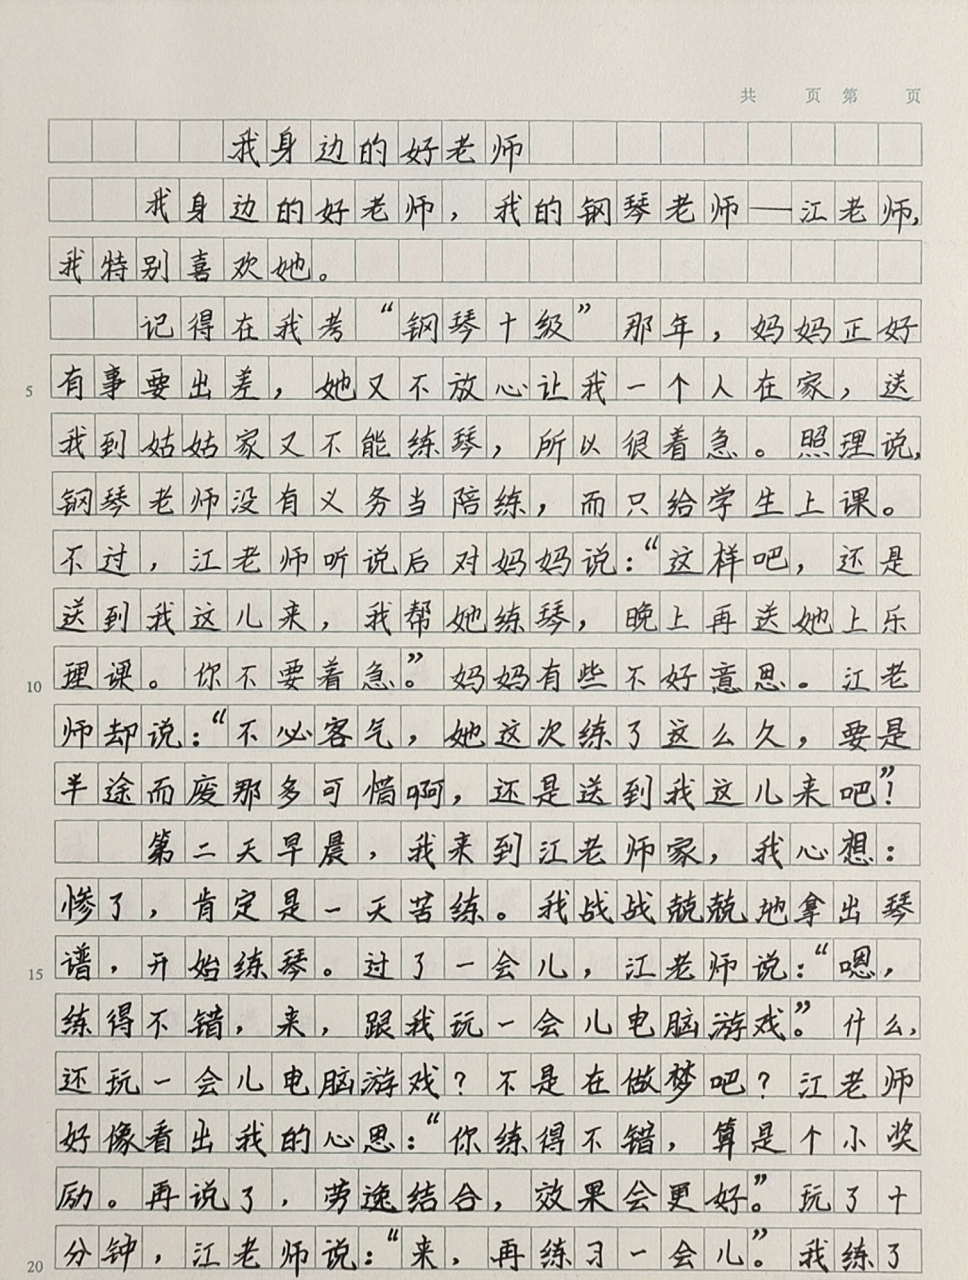 共 页 第 页
我身边的好老师
我身边的好老师，我的钢琴老师——江老师，
我特别喜欢她。
记得在我考“钢琴十级”那年，妈妈正好
5 有事要出差，她又不放心让我一个人在家，送
我到姑姑家又不能练琴，所以很着急。照理说，
钢琴老师没有义务当陪练，而只给学生上课。
不过，江老师听说后对妈妈说：“这样吧，还是
送到我这儿来，我帮她练琴，晚上再送她上乐
10 理课。你不要着急。”妈妈有些不好意思。江老
师却说：“不必客气，她这次练了这么久，要是
半途而废那多可惜啊，还是送到我这儿来吧！”
第二天早晨，我来到江老师家，我心想：
惨了，肯定是一天苦练。我战战兢兢地拿出琴
15 谱，开始练琴。过了一会儿，江老师说：“嗯，
练得不错，来，跟我玩一会儿电脑游戏。”什么，
还玩一会儿电脑游戏？不是在做梦吧？江老师
好像看出我的心思：“你练得不错，算是个小奖
励。再说了，劳逸结合，效果会更好。”玩了十
20 分钟，江老师说：“来，再练习一会儿。”我练了